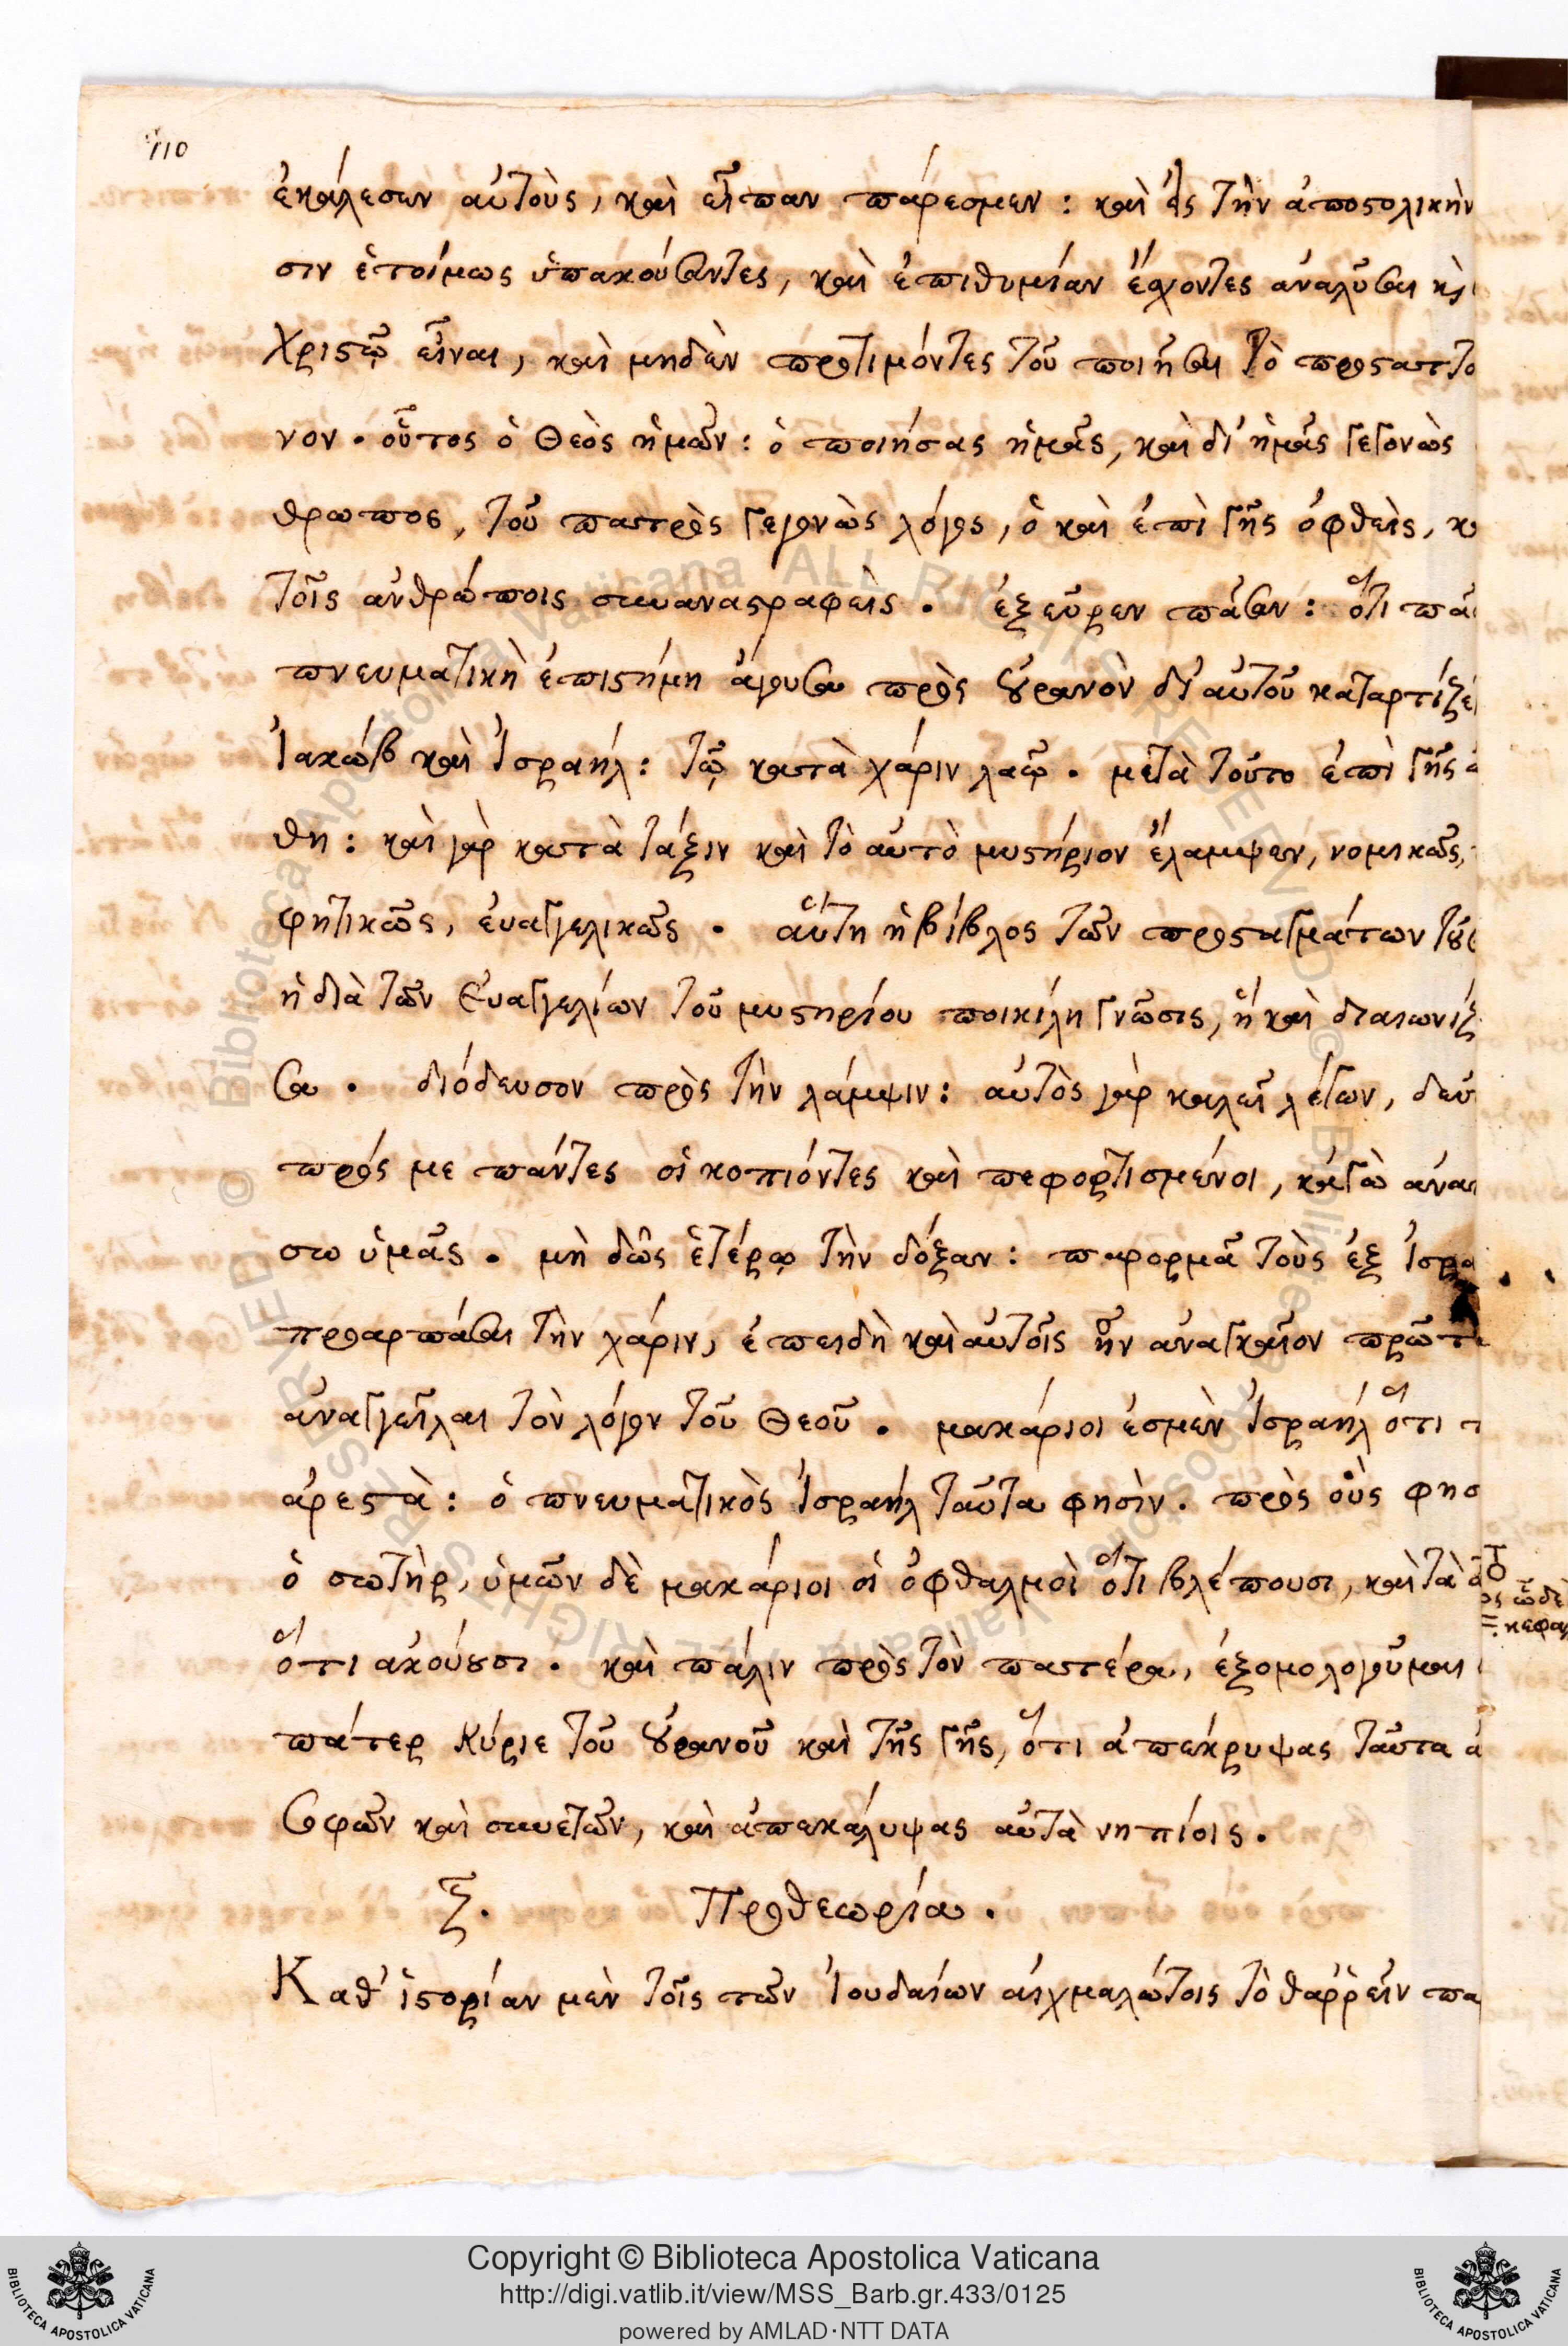 110
ἐκάλεσεν αὐτοὺς, καὶ εἶπαν πάρεσμεν: καὶ εἰς τὴν ἀποστολικὴν
σιν ἑτοίμως ὑπακούσαντες, καὶ ἐπιθυμίαν ἔχοντες ἀναλῦσαι καὶ
Χριστῷ εἶναι, καὶ μηδὲν προτιμόντες τοῦ ποιῆσαι τὸ προσταττο
νον. οὗτος ὁ Θεὸς ἡμῶν: ὁ ποιήσας ἡμᾶς, καὶ δι' ἡμᾶς γεγονὼς
θρωπος, τοῦ πατρὸς γεγονὼς λόγος, ὁ καὶ ἐπὶ γῆς ὀφθεὶς, κ
τοῖς ἀνθρώποις συναναστραφείς. ἐξεῦρεν πᾶσαν: ὅτι πᾶ
πνευματικὴ ἐπιστήμη ἄγουσα πρὸς οὐρανὸν δι' αὐτοῦ καταρτίζε
Ἰακώβ καὶ Ἰσραήλ: τῷ κατὰ χάριν λαῷ. μετὰ τοῦτο ἐπὶ γῆς
θη: καὶ γὰρ κατὰ τάξιν καὶ τὸ αὐτὸ μυστήριον ἔλαμψεν, νομικῶς,
φητικῶς, ἐυαγγελικῶς. αὕτη ἡ βίβλος τῶν προσταγμάτων τοῦ
ἡ διὰ τῶν Ἐυαγγελίων τοῦ μυστηρίου ποικίλη γνῶσις, ἥ καὶ διαιωνίζ
σα. διόδευσον πρὸς τὴν λάμψιν: αὐτὸς γὰρ καλεῖ λέγων, δεῦ
πρός με πάντες οἱ κοπιόντες καὶ πεφορτισμένοι, κἀγὼ ἀνα
σω ὑμᾶς. μὴ δῶς ἑτέρῳ τὴν δόξαν: παρορμᾶ τοὺς ἐξ Ἰσρα
προαρπάσαι τὴν χάριν, ἐπειδὴ καὶ αὐτοῖς ἦν ἀναγκαῖον πρῶτ
ἀναγγεῖλαι τὸν λόγον τοῦ Θεοῦ. μακάριοι ἐσμὲν Ἰσραήλ ὅτι τ
ἀρεστὰ: ὁ πνευματικὸς Ἰσραήλ ταῦτα φησὶν. πρὸς οὓς φησ
ὁ σωτὴρ, ὑμῶν δὲ μακάριοι οἱ ὀφθαλμοὶ ὅτι βλέπουσι, καὶ τὰ
ὅτι ἀκούουσι. καὶ πάλιν πρὸς τὸν πατέρα, ἐξομολογοῦμαι
πάτερ κύριε τοῦ οὐρανοῦ καὶ τῆς γῆς, ὅτι ἀπέκρυψας ταῦτα ἀ
σοφῶν καὶ συνετῶν, καὶ ἀπεκάλυψας αὐτὰ νηπίοις.
ξ. Προθεωρία.
Καθ' ἱστορίαν μὲν τοῖς τῶν Ἰουδαίων αἰχμαλώτοις τὸ θαῤῥεῖν πα
© Biblioteca Apostolica Vaticana ALL RIGHTS RESERVED © Biblioteca Apostolica Vaticana ALL RIGHTS RESERVED
Copyright © Biblioteca Apostolica Vaticana
http://digi.vatlib.it/view/MSS_Barb.gr.433/0125
powered by AMLAD·NTT DATA
BIBLIOTECA APOSTOLICA VATICANA
BIBLIOTECA APOSTOLICA VATICANA